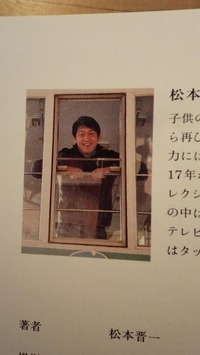 松本
子供の
ら再び
力には
17年
レクシ
の中は
テレビ
はタッ
著者 松本晋一